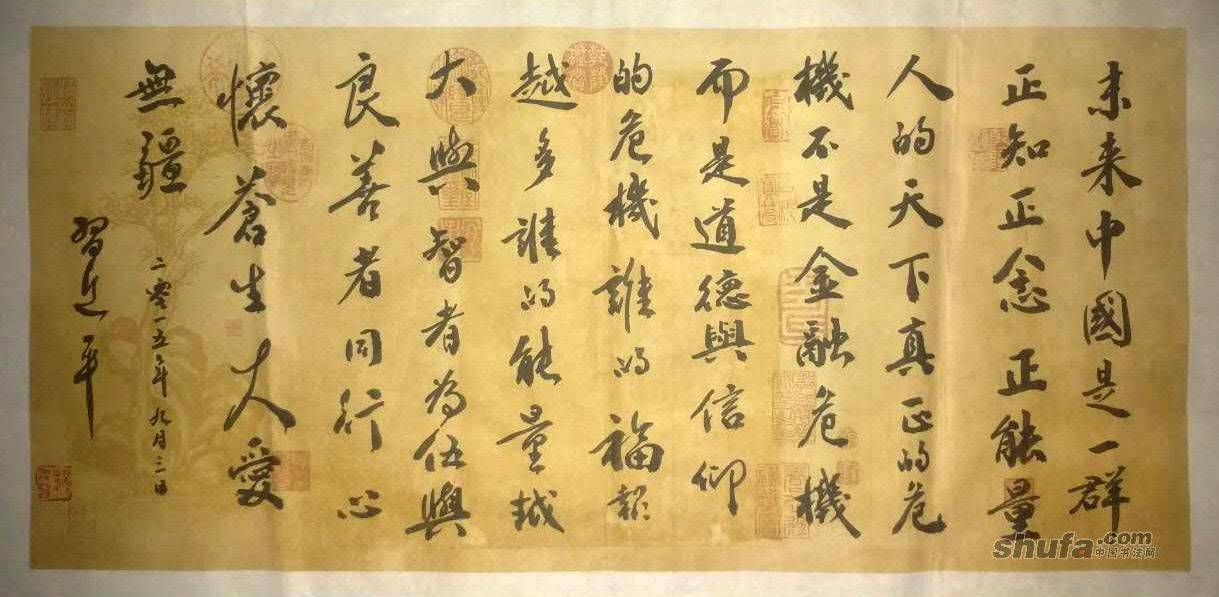 未来中國是一群
正知正念正能量
人的天下真正的危
機不是金融危機
而是道德與信仰
的危機誰的福報
越多誰的能量越
大與智者為伍與
良善者同行心
懷蒼生大愛
無疆
二零一五年九月三日
習近平
shufa.com
中国书法网